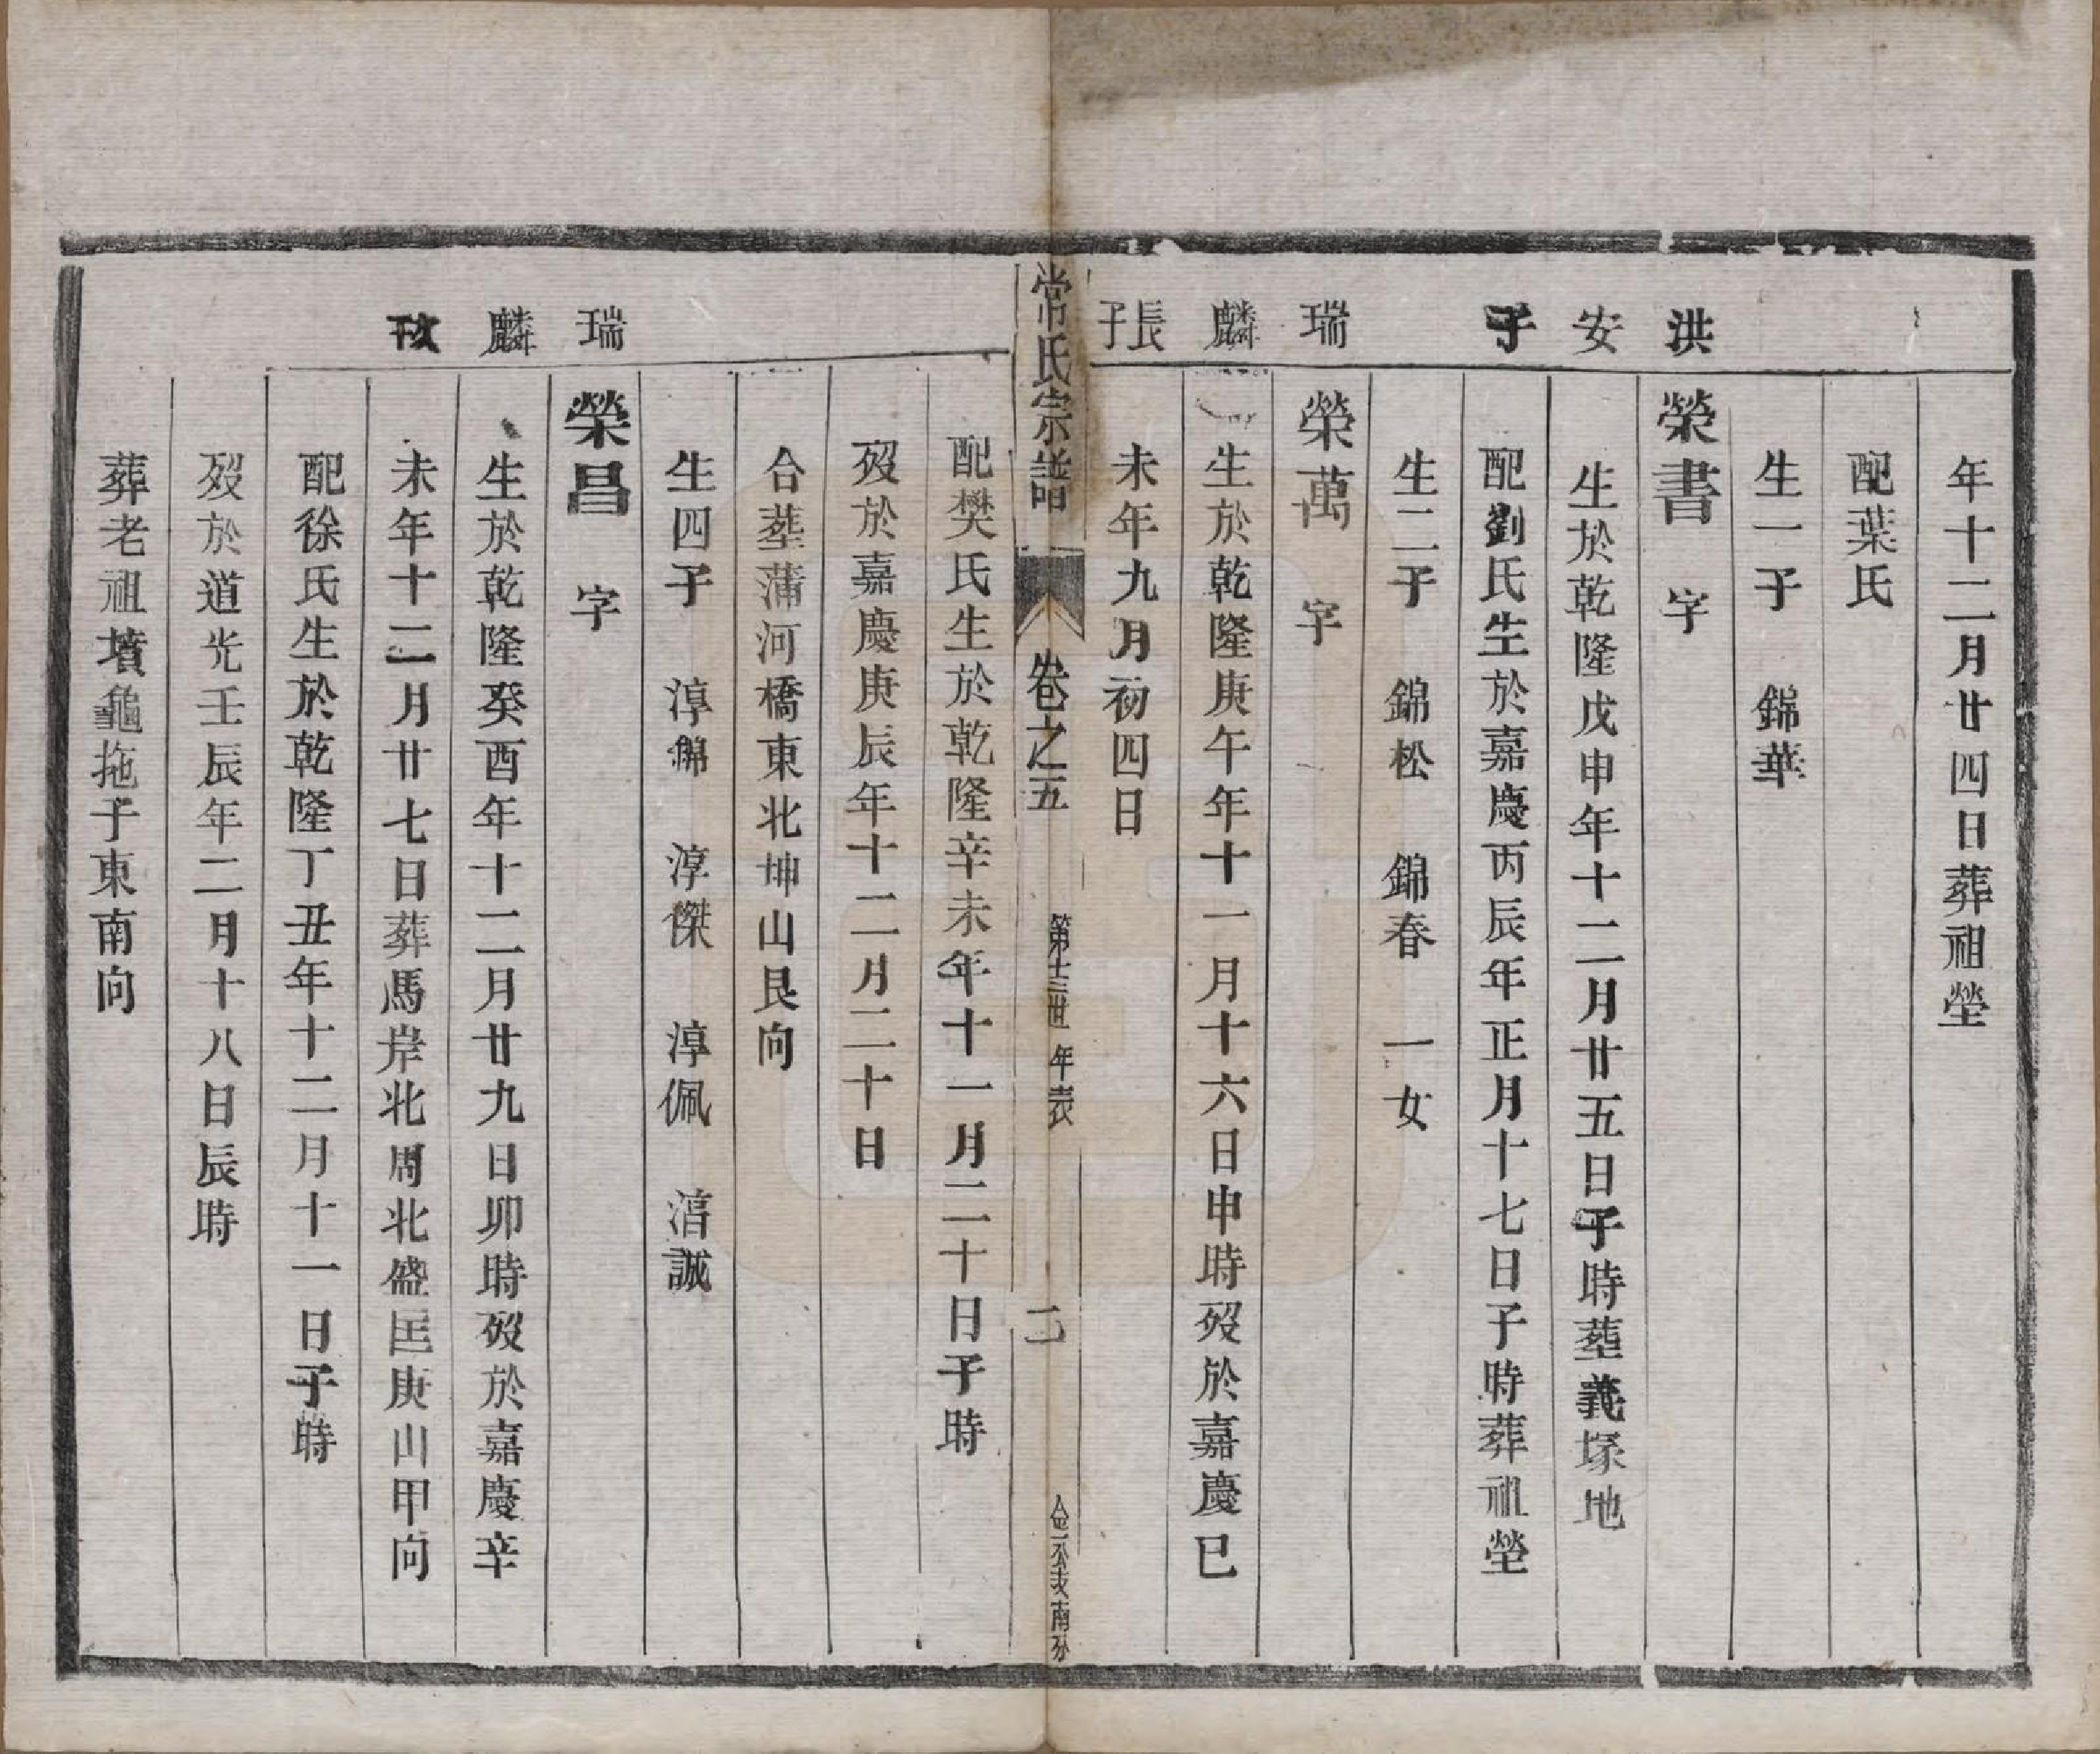 年十二月廿四日葬祖塋
配葉氏
生一子 錦華
洪安子
榮書 字
生於乾隆戊申年十二月廿五日子時塟義塚地
配劉氏生於嘉慶丙辰年正月十七日子時葬祖塋
生二子 錦松 錦春 一女
瑞麟長子
榮萬 字
生於乾隆庚午年十一月十六日申時歿於嘉慶已
未年九月初四日
常氏宗譜 卷之五 第十三世 年表 二
配樊氏生於乾隆辛未年十一月二十日子時
歿於嘉慶庚辰年十二月二十日
合塟蒲河橋東北坤山艮向
生四子 淳錦 淳傑 淳佩 淳誠
瑞麟次子
榮昌 字
生於乾隆癸酉年十二月廿九日卯時歿於嘉慶辛
未年十二月廿七日葬馬岸北周北盛匡庚山甲向
配徐氏生於乾隆丁丑年十二月十一日子時
歿於道光壬辰年二月十八日辰時
葬老祖墳龜拖子東南向